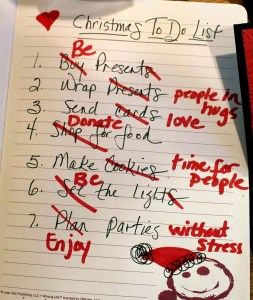 Christmas To Do List
1. Buy Be Presents
2. Wrap Presents people in hugs
3. Send Cards love
4. Shop for Donate food
5. Make Cookies time for people
6. See Be the Lights
7. Plan Parties without stress
Enjoy